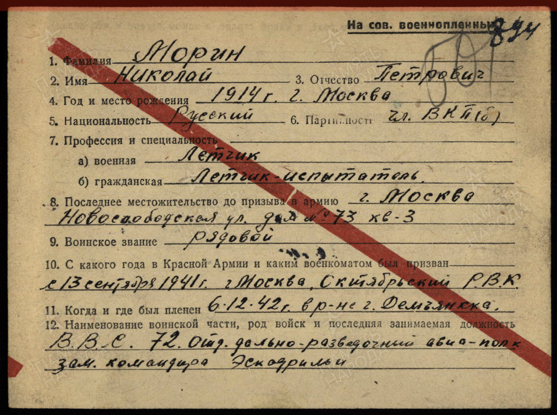 На сов. военнопленных
894
1. Фамилия Морин
2. Имя Николай 3. Отчество Петрович
4. Год и место рождения 1914 г. г. Москва
5. Национальность Русский 6. Партийность чл. ВКП(б)
7. Профессия и специальность
а) военная Летчик
б) гражданская Летчик-испытатель
8. Последнее местожительство до призыва в армию г. Москва
Новослободская ул. дом № 73 кв-3
9. Воинское звание рядовой
10. С какого года в Красной Армии и каким военкоматом был призван
с 13 сентября 1941 г. г Москва, Октябрьский Р.В.К.
11. Когда и где был пленен 6.12.42 г. в р-не г. Демьянска.
12. Наименование воинской части, род войск и последняя занимаемая должность
В.В.С. 72. Отд. дально-разведочный авиа-полк
зам. командира Эскадрильи